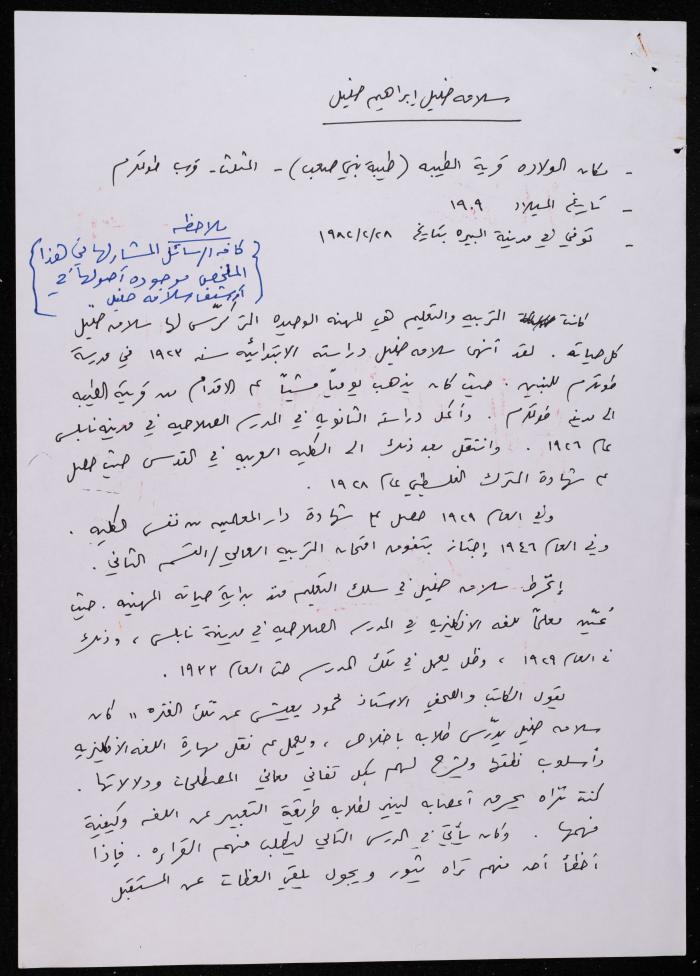 سلامه خليل إبراهيم خليل
- مكان الولاده قرية الطيبه (طيبة بني صعب) - المثلث - قرب طولكرم
- تاريخ الميلاد ١٩٠٩
- توفي في مدينة البيره بتاريخ ١٩٨٢/٢/٢٨
ملاحظه
كافه الرسائل المشار لها في هذا
الملخص موجوده أصولها في
أرشيف سلامه خليل
كانت التربيه والتعليم هي المهنه الوحيده التي كرّس لها سلامه خليل
كل حياته . لقد أنهى سلامه خليل دراسته الابتدائيه سنه ١٩٢٣ في مدرسة
طولكرم للبنين . حيث كان يذهب يومياً مشياً على الاقدام من قرية الطيبه
الى مدينه طولكرم . وأكمل دراسته الثانويه في المدرسه الصلاحيه في مدينة نابلس
عام ١٩٢٦ . وانتقل بعد ذلك الى الكليه العربيه في القدس حيث حصل
على شهادة المترك الفلسطيني عام ١٩٢٨ .
وفي العام ١٩٢٩ حصل على شهادة دار المعلمين من نفس الكليه .
وفي العام ١٩٤٦ إجتاز بتفوق امتحان التربيه العالي / القسم الثاني .
إنخرط سلامه خليل في سلك التعليم منذ بداية حياته المهنيه . حيث
عُيّن معلماً للغه الانكليزيه في المدرسه الصلاحيه في مدينة نابلس ، وذلك
في العام ١٩٢٩ ، وظل يعمل في تلك المدرسه حتى العام ١٩٣٣ .
يقول الكاتب والصحفي الاستاذ محمود يعيش عن تلك الفتره " كان
سلامه خليل يدرّس طلابه باخلاص ، ويعمل على نقل مهارة اللغه الانكليزيه
وأسلوب نطقها ويشرح لهم بكل تفاني معاني المصطلحات ودلالاتها .
كنت تراه يحرق أعصابه لينير لطلابه طريقة التعبير عن اللغه وكيفية
فهمها . وكان يأتي في الدرس التالي ليطلب منهم القراءه . فإذا
أخطأ أحد منهم تراه يثور ويجول يلقي العظات عن المستقبل